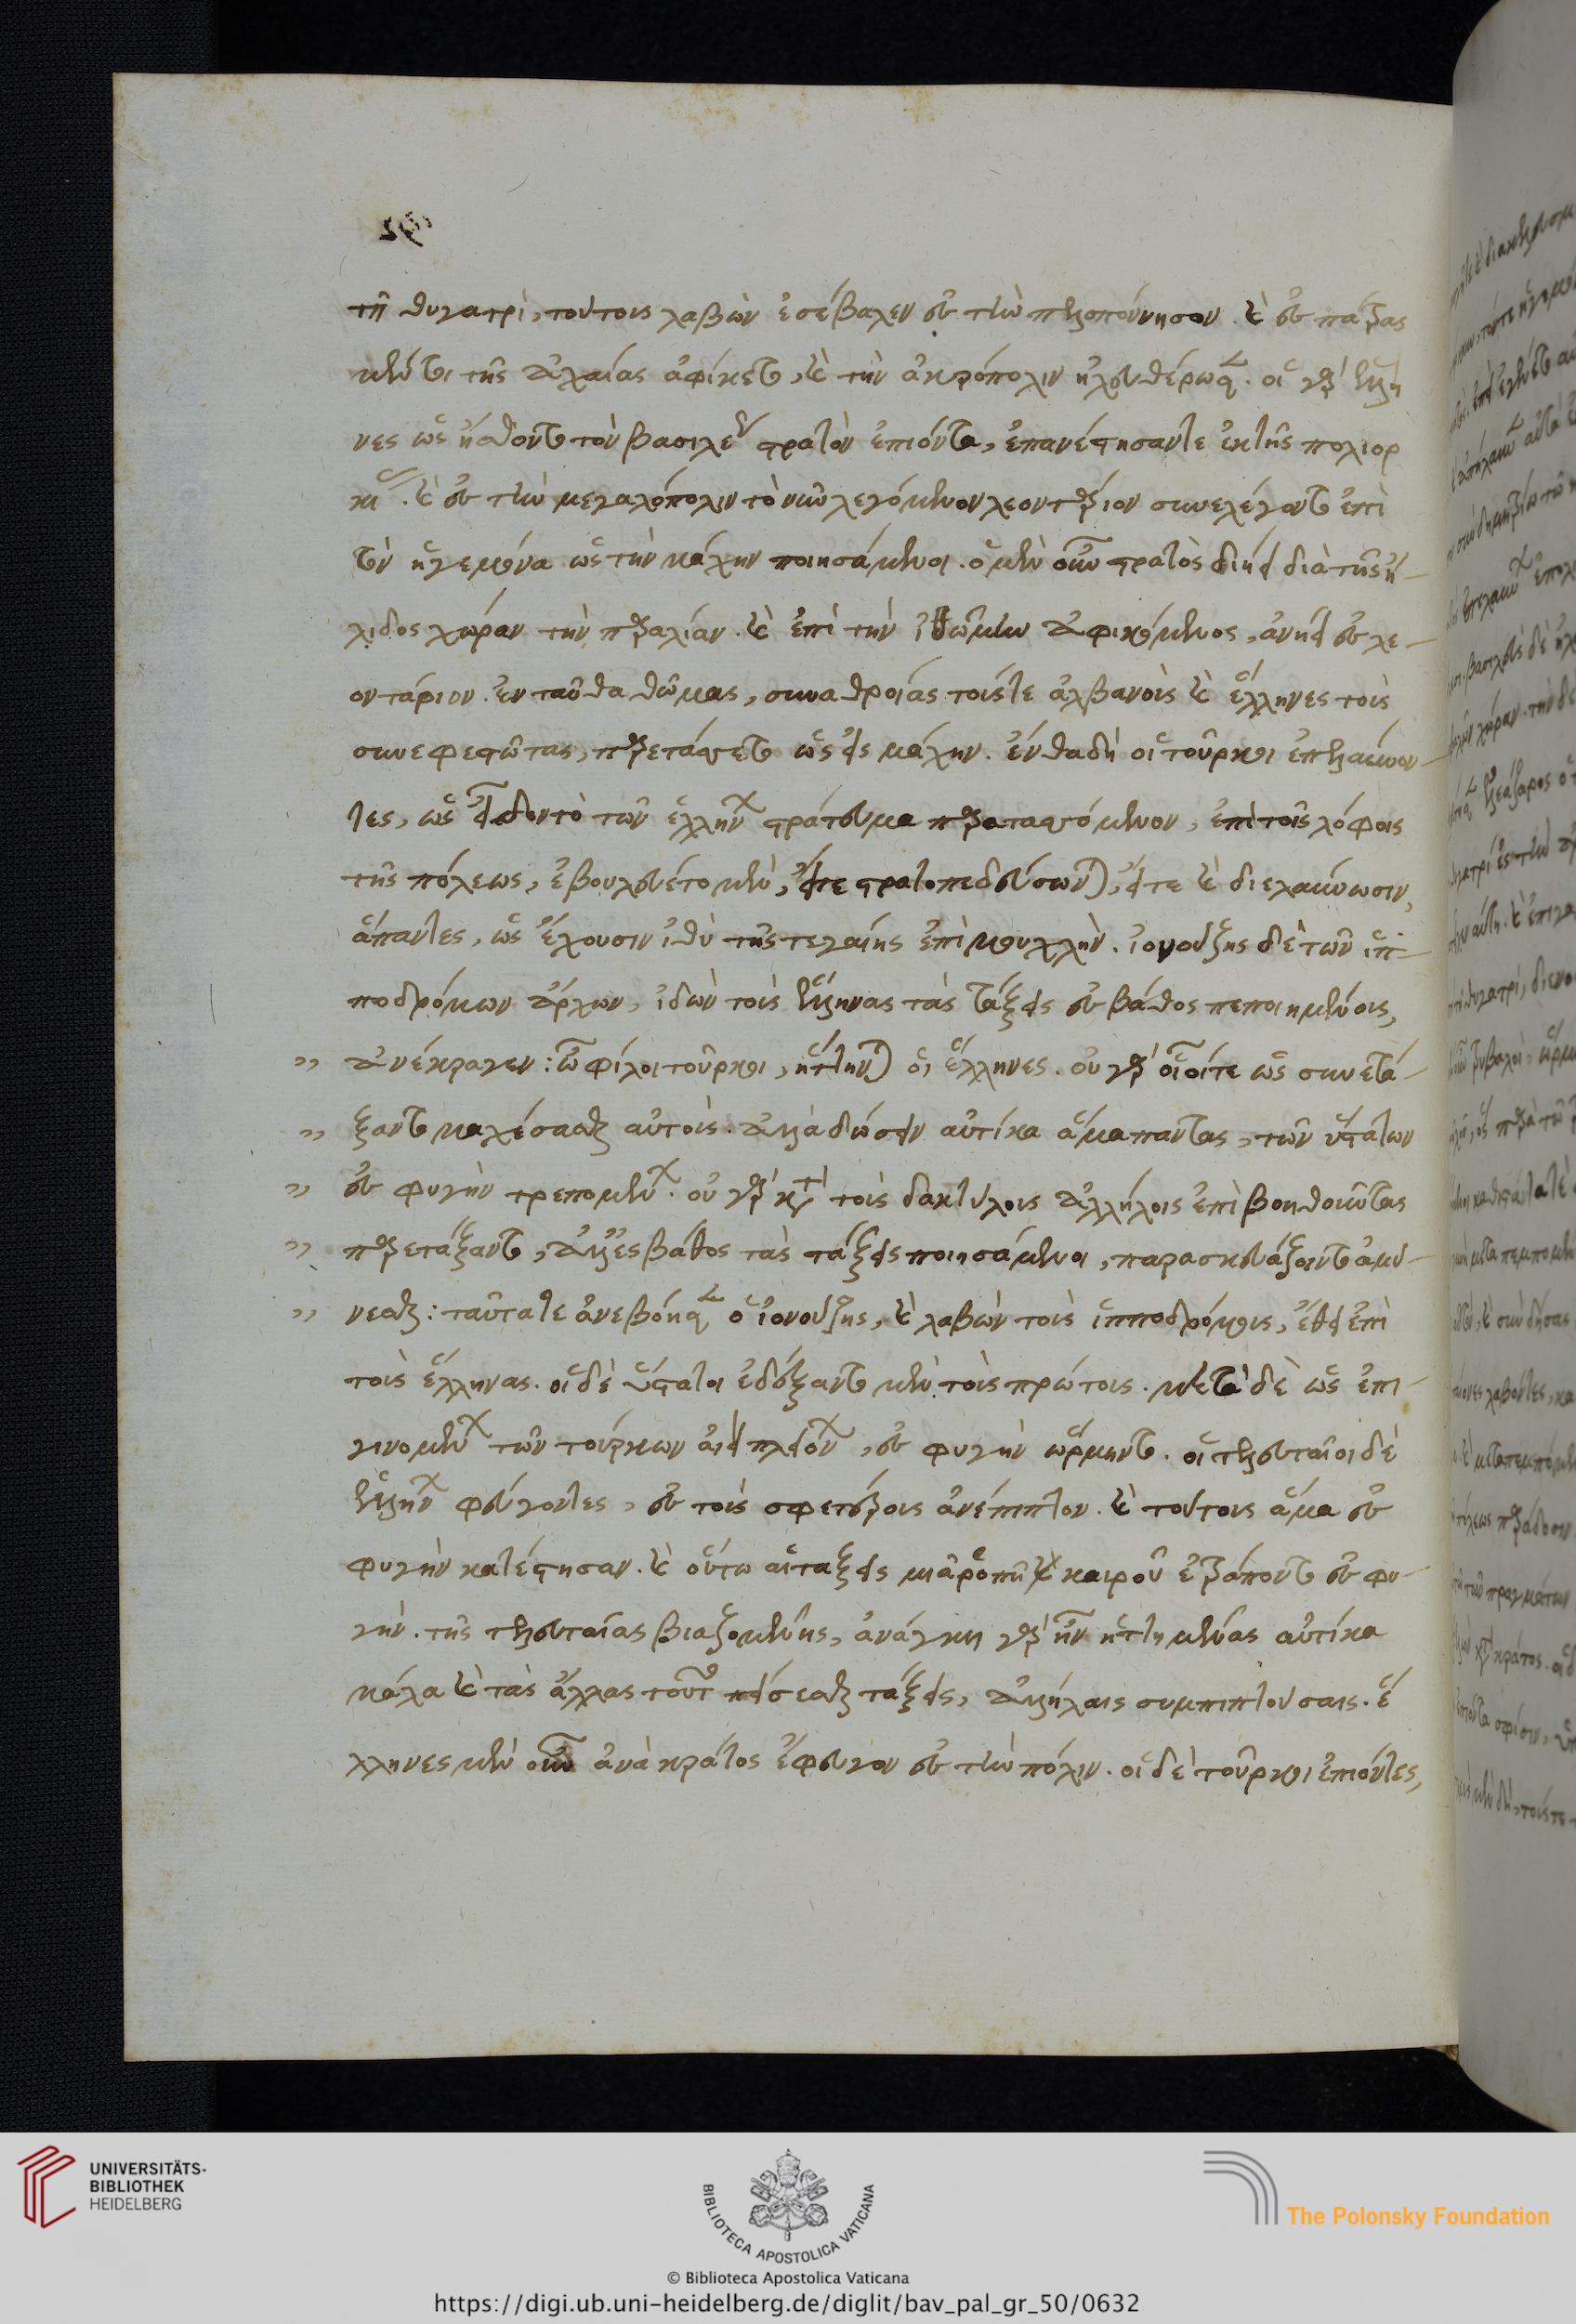 τῆ θυγατρὶ, τούτους λαβὼν ἐσέβαλεν ἐς τὴν πελοπόννησον. καὶ ἐς πάτρας
μὲν ἔτι τῆς ἀχαίας ἀφίκετο, καὶ τὴν ἀκρόπολιν ἠλευθέρωσε. οἱ γὰρ ἕλλη
νες ὡς ἤσθοντο τὸν βασιλέως στρατὸν ἐπιόντα, ἐπανέστησάν τε ἐκ τῆς πολιορ
κίας. καὶ ἐς τὴν μεγαλόπολιν τὸ νῦν λεγόμενον λεοντάριον συνελέγοντο ἐπὶ
τὸν ἡγεμόνα ὡς τὴν μάχην ποιησάμενοι. ὁ μὲν οὖν στρατὸς διήει διὰ τῆς ἤ-
λιδος χώραν τὴν παραλίαν. καὶ ἐπὶ τὴν ἰθώμην ἀφικόμενος, ἀνήει ἐς λε-
οντάριον. ἐνταῦθα θῶμας, συναθροίσας τούς τε ἀλβανοὺς καὶ ἕλληνες τοὺς
συνεφεστῶτας, παρετάσσετο ὡς εἰς μάχην. ἐνθαδὴ οἱ τοῦρκοι ἐπελαύνον-
τες, ὡς εἶδον τὸ τῶν ἑλλήνων στράτευμα παρατασσόμενον, ἐπὶ τοῖς λόφοις
τῆς πόλεως, ἐβουλεύετο μὲν, εἴτε στρατοπεδεύσωνται, εἴτε καὶ διελαύνωσιν,
ἅπαντες, ὡς ἔχουσιν ἰθὺ τῆς τεγαίης ἐπὶ μουχλὴν. ἰονούζης δὲ τῶν ἱπ-
ποδρόμων ἄρχων, ἰδὼν τοὺς ἕλληνας τὰς τάξεις ἐς βάθος πεποιημένους,
ἀνέκραγεν: ὦ φίλοι τοῦρκοι, ἥττηνται οἱ ἕλληνες. οὐ γὰρ οἷοί τε ὡς συνετά-
ξαντο μαχέσασθαι αὐτοὺς. ἀλλὰ δώσειν αὐτίκα ἅμα πάντας, τῶν ὑστάτων
ἐς φυγὴν τρεπομένων. οὐ γὰρ κατὰ τοὺς δακτύλους ἀλλήλοις ἐπιβοηθοῦντας
παρετάξαντο, ἀλλ' ἐς βάθος τὰς τάξεις ποιησάμενοι, παρασκευάζοντο ἀμύ-
νεσθαι: ταῦτά τε ἀνεβόησε ὁ ἰονούζης, καὶ λαβὼν τοὺς ἱπποδρόμους, ἔθει ἐπὶ
τοὺς ἕλληνας. οἱ δὲ ὕστατοι ἐδέξαντο μὲν τοὺς πρώτους. μετὰ δὲ ὡς ἐπι-
γινομένων τῶν τούρκων ἀεὶ πλειόνων, ἐς φυγὴν ὥρμηντο. οἱ τελευταῖοι δὲ
ἑλλήνων φεύγοντες, ἐς τοὺς σφετέρους ἀνέπιπτον. καὶ τούτους ἅμα ἐς
φυγὴν κατέστησαν. καὶ οὕτω αἱ τάξεις μιᾷ ῥοπῇ καιροῦ ἐτράποντο ἐς φυ-
γήν. τῆς τελευταίας βιαζομένης, ἀνάγκη γὰρ ἦν ἡττημένας αὐτίκα
μάλα καὶ τὰς ἄλλας τοῦτο πείσεσθαι τάξεις, ἀλλήλαις συμπιπτούσαις. ἕ
λληνες μὲν οὖν ἀνὰ κράτος ἔφευγον ἐς τὴν πόλιν. οἱ δὲ τοῦρκοι ἐπιόντες,
UNIVERSITÄTS-
BIBLIOTHEK
HEIDELBERG
BIBLIOTECA APOSTOLICA VATICANA
The Polonsky Foundation
© Biblioteca Apostolica Vaticana
https://digi.ub.uni-heidelberg.de/diglit/bav_pal_gr_50/0632